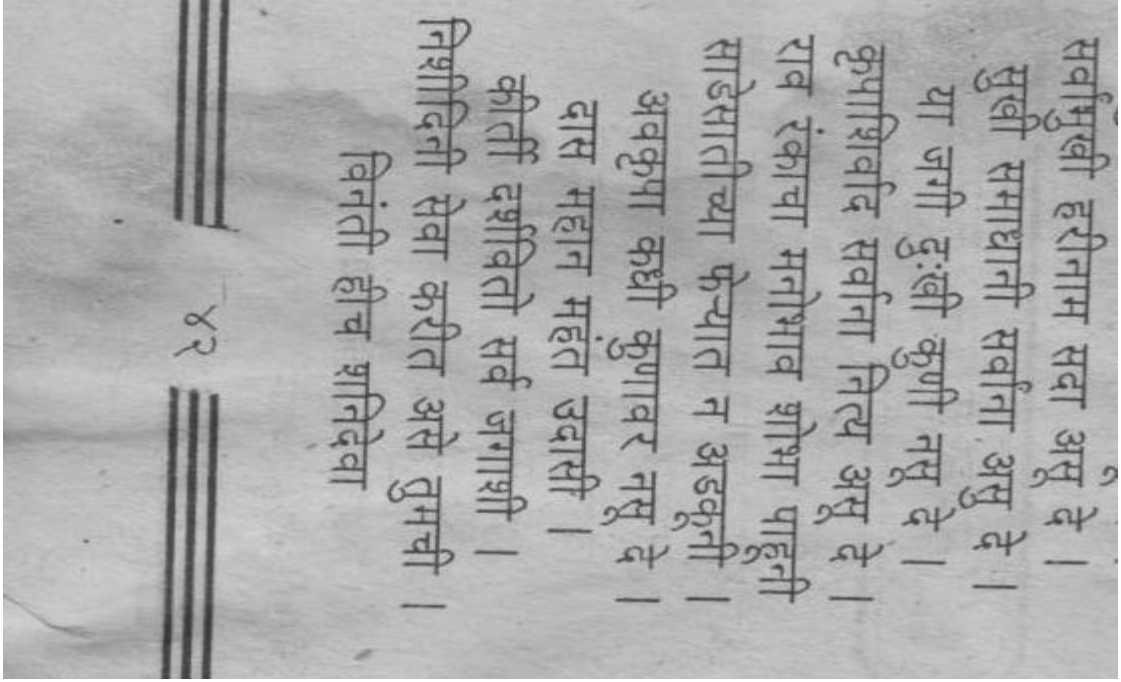 सर्वांमुखी हरीनाम सदा असू दे ।
सुखी समाधानी सर्वांना असु दे ।
या जगी दुःखी कुणी नसु दे ।
कृपाशिर्वाद सर्वांना नित्य असू दे ।
राव रंकाचा मनोभाव शोभा पाहूनी
साडेसातीच्या फेऱ्यात न अडकूनी ।
अवकृपा कधी कुणावर नसू दे ।
दास महान महंत उदासी ।
कीर्ती दर्शविती सर्व जगाशी ।
निशीदिनी सेवा करीत असे तुमची ।
विनंती हीच शनिदेवा
४२